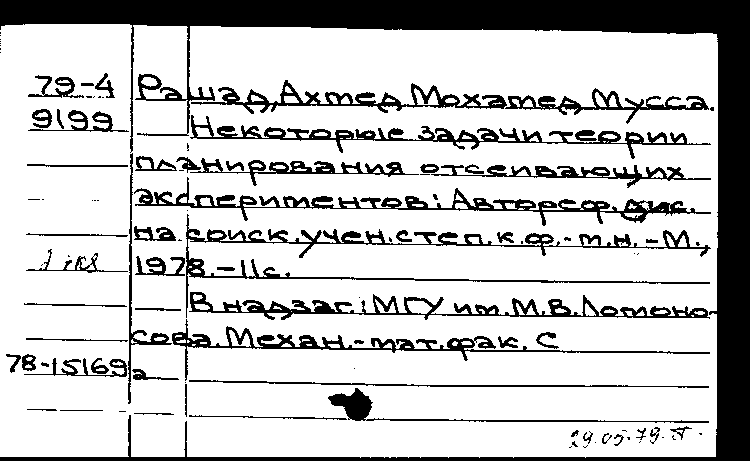 79-4 Рашад, Ахмед Мохамед Мусса.
9199 Некоторые задачи теории
планирования отсеивающих
экспериментов: Автореф. дис.
на соиск. учен. степ. к. ф.-м. н. - М.,
1 экз 1978. - 11с.
В надзаг.: МГУ им. М.В. Ломоно-
сова. Механ.-мат. фак. С
78-15169а
29.05.79.